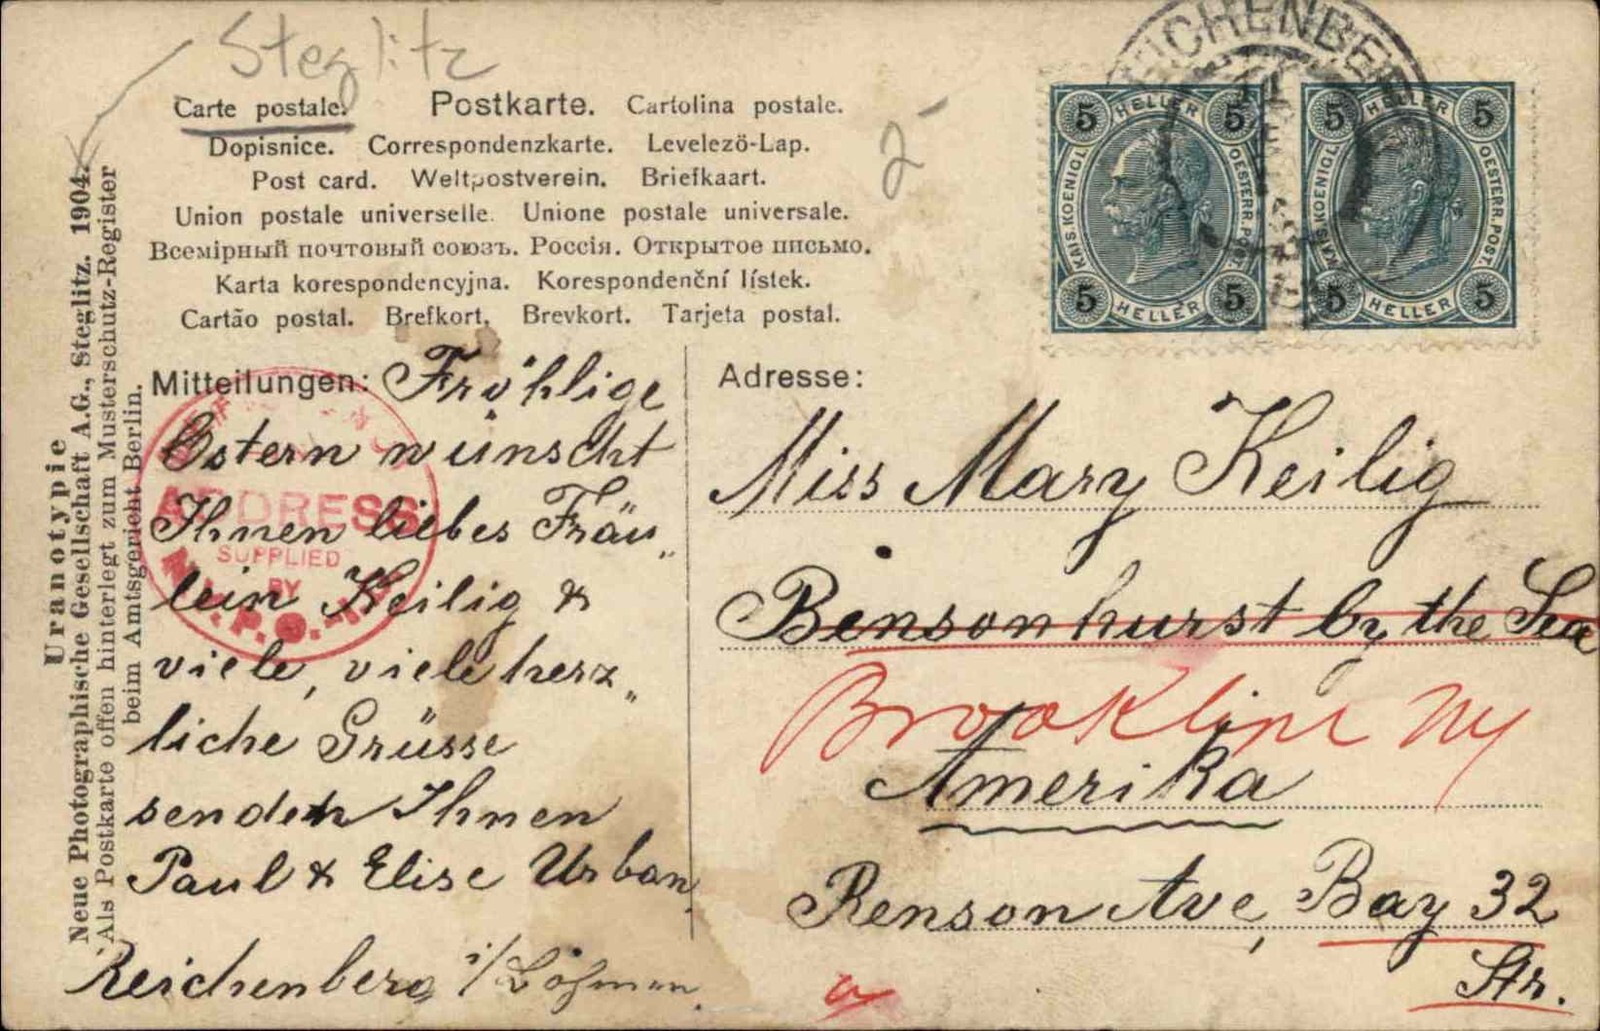 Steglitz
Carte postale. Postkarte. Cartolina postale.
Dopisnice. Correspondenzkarte. Levelező-Lap.
Post card. Weltpostverein. Briefkaart.
Union postale universelle. Unione postale universale.
Всемірный почтовый союзъ. Россія. Открытое письмо.
Karta korespondencyjna. Korespondenční lístek.
Cartão postal. Brefkort. Brevkort. Tarjeta postal.
2-
REICHENBERG
5 HELLER 5
KAIS. KOENIGL. OESTERR. POST.
5 HELLER 5
5 HELLER 5
KAIS. KOENIGL. OESTERR. POST.
5 HELLER 5
Uranotypie
Neue Photographische Gesellschaft A.G., Steglitz. 1904.
Als Postkarte offen hinterlegt zum Musterschutz-Register
beim Amtsgericht Berlin.
Mitteilungen: Fröhlige
Ostern wünscht
Ihnen liebes Fräu„
lein Keilig &
viele, viele herz„
liche Grüsse
senden Ihnen
Paul & Elise Urban.
Reichenberg i/Böhmen.
ADDRESS
SUPPLIED
BY
N.Y.P.O.
Adresse:
Miss Mary Keilig
Bensonhurst by the Sea
Brooklyn NY
Amerika
Benson Ave, Bay 32
Str.